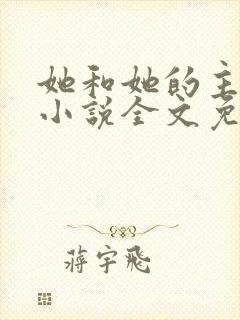 她和她的主
小说全文免
蒋宇飛